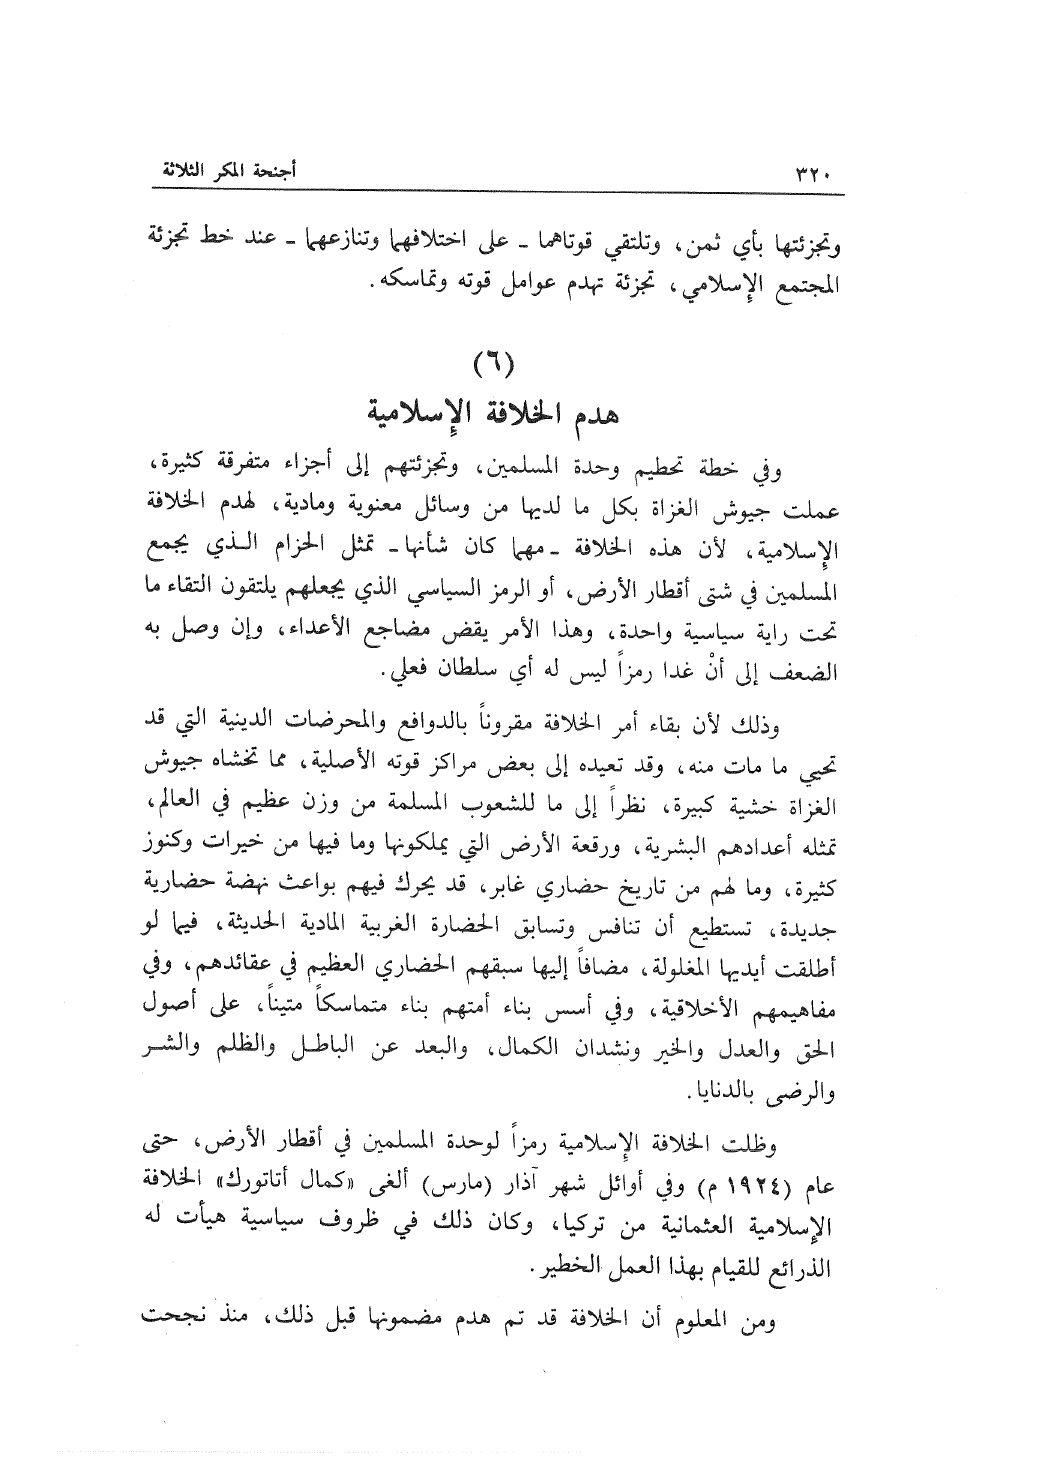 ٣٢٠ أجنحة المكر الثلاثة
وتجزئتها بأي ثمن، وتلتقي قوتاهما ـ على اختلافهما وتنازعهما ـ عند خط تجزئة
المجتمع الإسلامي، تجزئة تهدم عوامل قوته وتماسكه.
(٦)
هدم الخلافة الإسلامية
وفي خطة تحطيم وحدة المسلمين، وتجزئتهم إلى أجزاء متفرقة كثيرة،
عملت جيوش الغزاة بكل ما لديها من وسائل معنوية ومادية، لهدم الخلافة
الإسلامية، لأن هذه الخلافة ـ مهما كان شأنها ـ تمثل الحزام الذي يجمع
المسلمين في شتى أقطار الأرض، أو الرمز السياسي الذي يجعلهم يلتقون التقاء ما
تحت راية سياسية واحدة، وهذا الأمر يقض مضاجع الأعداء، وإن وصل به
الضعف إلى أنْ غدا رمزاً ليس له أي سلطان فعلي.
وذلك لأن بقاء أمر الخلافة مقروناً بالدوافع والمحرضات الدينية التي قد
تحيي ما مات منه، وقد تعيده إلى بعض مراكز قوته الأصلية، مما تخشاه جيوش
الغزاة خشية كبيرة، نظراً إلى ما للشعوب المسلمة من وزن عظيم في العالم،
تمثله أعدادهم البشرية، ورقعة الأرض التي يملكونها وما فيها من خيرات وكنوز
كثيرة، وما لهم من تاريخ حضاري غابر، قد يحرك فيهم بواعث نهضة حضارية
جديدة، تستطيع أن تنافس وتسابق الحضارة الغربية المادية الحديثة، فيما لو
أطلقت أيديها المغلولة، مضافاً إليها سبقهم الحضاري العظيم في عقائدهم، وفي
مفاهيمهم الأخلاقية، وفي أسس بناء أمتهم بناء متماسكاً متيناً، على أصول
الحق والعدل والخير ونشدان الكمال، والبعد عن الباطل والظلم والشر
والرضى بالدنايا.
وظلت الخلافة الإسلامية رمزاً لوحدة المسلمين في أقطار الأرض، حتى
عام (١٩٢٤ م) وفي أوائل شهر آذار (مارس) ألغى «كمال أتاتورك» الخلافة
الإسلامية العثمانية من تركيا، وكان ذلك في ظروف سياسية هيأت له
الذرائع للقيام بهذا العمل الخطير.
ومن المعلوم أن الخلافة قد تم هدم مضمونها قبل ذلك، منذ نجحت